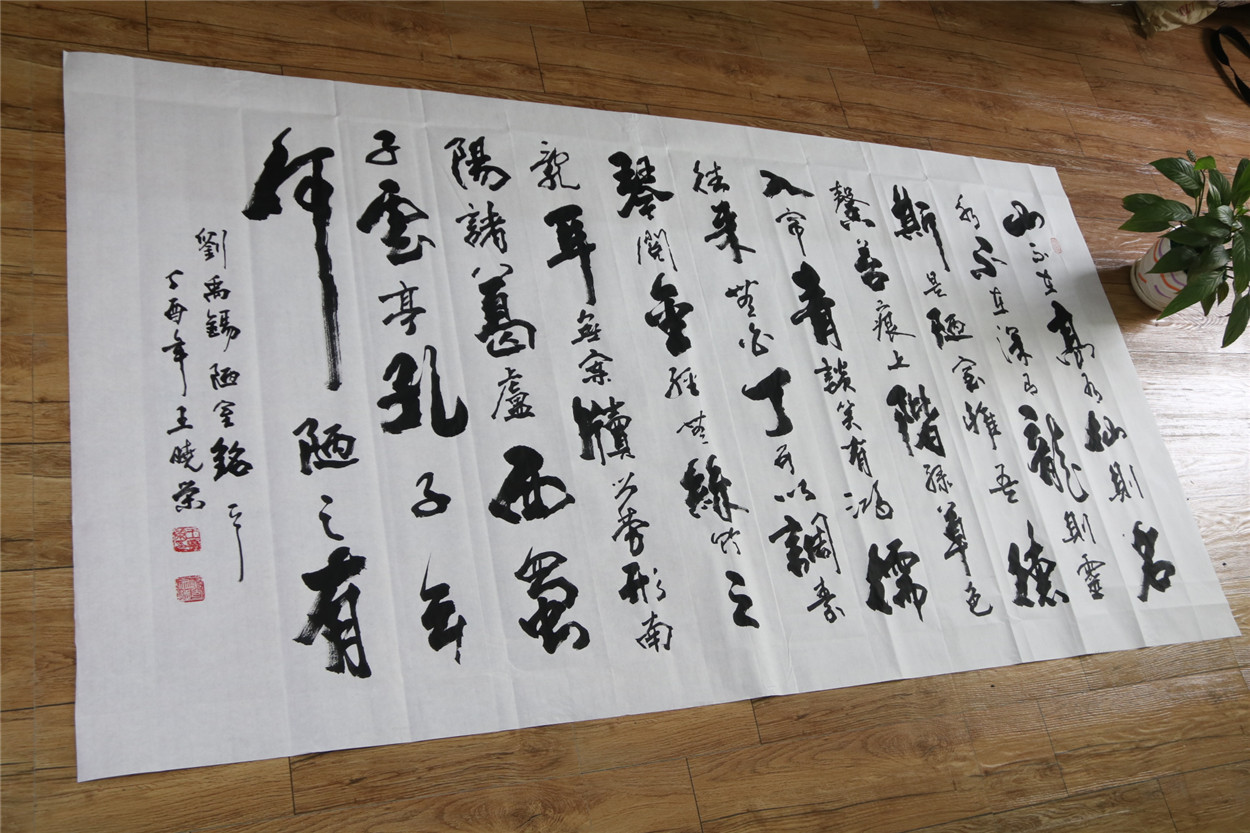 山不在高有仙則名
水不在深有龍則靈
斯是陋室惟吾德
馨苔痕上階綠草色
入帘青談笑有鴻儒
往来無白丁可以調素
琴閱金經無絲竹之
亂耳無案牘之勞形南
陽諸葛廬西蜀
子雲亭孔子云
何陋之有
劉禹錫陋室銘
丁酉年王曉榮